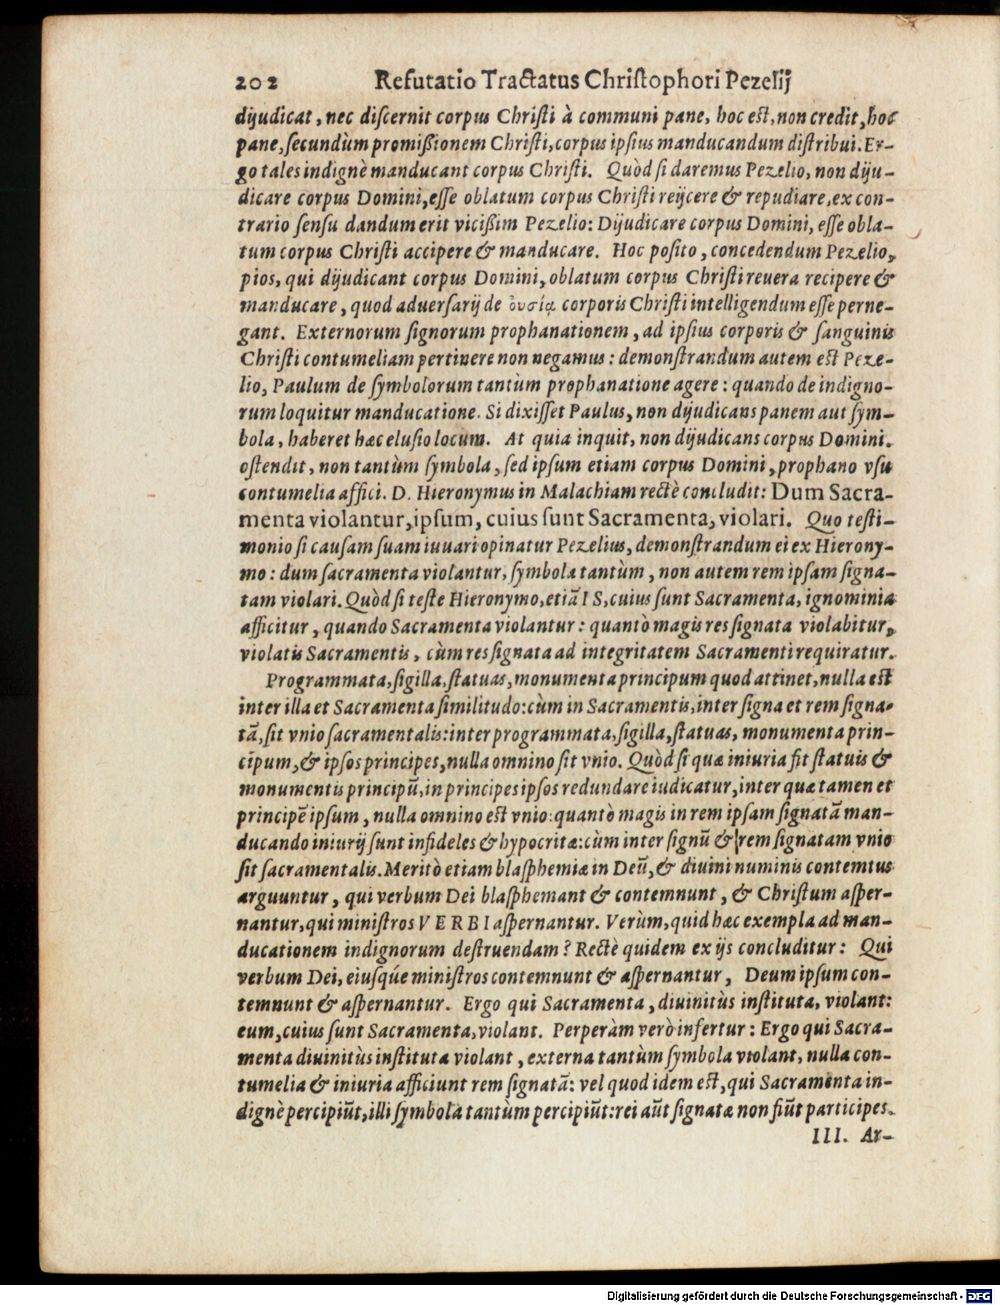 202 Refutatio Tractatus Christophori Pezelij
dijudicat, nec discernit corpus Christi à communi pane, hoc est, non credit, hoc
pane, secundùm promißionem Christi, corpus ipsius manducandum distribui. Er-
go tales indignè manducant corpus Christi. Quòd si daremus Pezelio, non diju-
dicare corpus Domini, esse oblatum corpus Christi reijcere & repudiare, ex con-
trario sensu dandum erit vicißim Pezelio: Dijudicare corpus Domini, esse obla-
tum corpus Christi accipere & manducare. Hoc posito, concedendum Pezelio,
pios, qui dijudicant corpus Domini, oblatum corpus Christi reuera recipere &
manducare, quod aduersarij de ὀυσίᾳ corporis Christi intelligendum esse perne-
gant. Externorum signorum prophanationem, ad ipsius corporis & sanguinis
Christi contumeliam pertinere non negamus: demonstrandum autem est Peze-
lio, Paulum de symbolorum tantùm prophanatione agere: quando de indigno-
rum loquitur manducatione. Si dixisset Paulus, non dijudicans panem aut sym-
bola, haberet hæc elusio locum. At quia inquit, non dijudicans corpus Domini.
ostendit, non tantùm symbola, sed ipsum etiam corpus Domini, prophano vsu
contumelia affici. D. Hieronymus in Malachiam rectè concludit: Dum Sacra-
menta violantur, ipsum, cuius sunt Sacramenta, violari. Quo testi-
monio si causam suam iuuari opinatur Pezelius, demonstrandum ei ex Hierony-
mo: dum sacramenta violantur, symbola tantùm, non autem rem ipsam signa-
tam violari. Quòd si teste Hieronymo, etiã IS, cuius sunt Sacramenta, ignominia
afficitur, quando Sacramenta violantur: quantò magis res signata violabitur,
violatis Sacramentis, cùm res signata ad integritatem Sacramenti requiratur.
Programmata, sigilla, statuas, monumenta principum quod attinet, nulla est
inter illa et Sacramenta similitudo: cùm in Sacramentis, inter signa et rem signa-
tã, sit vnio sacramentalis: inter programmata, sigilla, statuas, monumenta prin-
cipum, & ipsos principes, nulla omnino sit vnio. Quòd si quæ iniuria fit statuis &
monumentis principũ, in principes ipsos redundare iudicatur, inter quæ tamen et
principẽ ipsum, nulla omnino est vnio: quantò magis in rem ipsam signatã man-
ducando iniurij sunt infideles & hypocritæ: cùm inter signũ & rem signatam vnio
sit sacramentalis. Meritò etiam blasphemiæ in Deũ, & diuini numinis contemtus
arguuntur, qui verbum Dei blasphemant & contemnunt, & Christum asper-
nantur, qui ministros VERBI aspernantur. Verùm, quid hæc exempla ad man-
ducationem indignorum destruendam? Rectè quidem ex ijs concluditur: Qui
verbum Dei, eiusq́ue ministros contemnunt & aspernantur, Deum ipsum con-
temnunt & aspernantur. Ergo qui Sacramenta, diuinitùs instituta, violant:
eum, cuius sunt Sacramenta, violant. Perperàm verò infertur: Ergo qui Sacra-
menta diuinitùs instituta violant, externa tantùm symbola violant, nulla con-
tumelia & iniuria afficiunt rem signatã: vel quod idem est, qui Sacramenta in-
dignè percipiũt, illi symbola tantùm percipiũt: rei aũt signatæ non fiũt participes.
III. Ar-
Digitalisierung gefördert durch die Deutsche Forschungsgemeinschaft - DFG